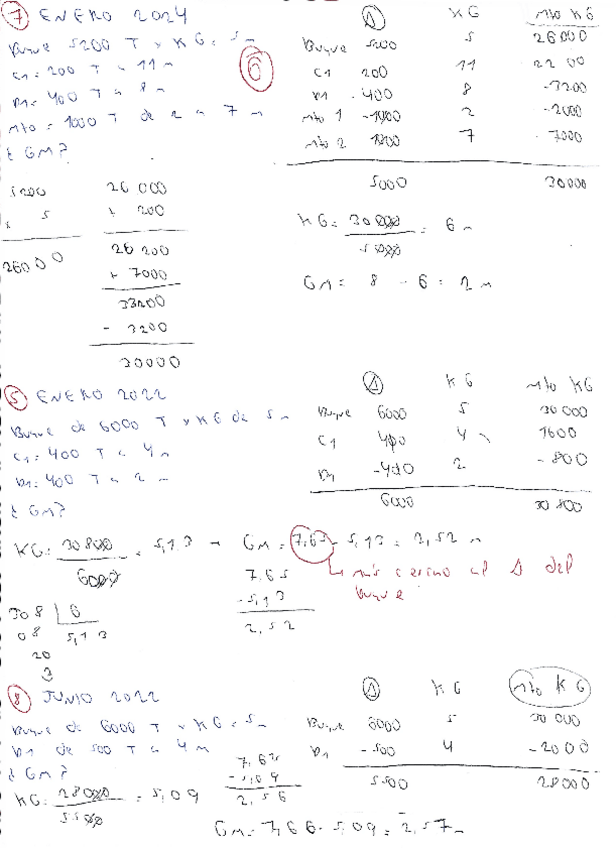 7 ENERO 2024
Buque 5200 T y KG = 5 m
C1 = 200 T a 11 m
D1 = 400 T a 8 m
mto = 1000 T de 2 a 7 m
¿ GM?
6
Δ KG Mto KG
Buque 5200 5 26000
C1 200 11 2200
D1 -400 8 -3200
mto 1 -1000 2 -2000
mto 2 1000 7 7000
5000 30000
5200
x 5
26000
26 000
+ 200
26 200
+ 7000
33200
- 3200
30000
KG = 30000 = 6 m
GM = 8 - 6 = 2 m
5 ENERO 2022
Buque de 6000 T y KG de 5 m
C1 = 400 T a 4 m
D1 = 400 T a 2 m
¿ GM?
Δ KG Mto KG
Buque 6000 5 30 000
C1 400 4 1600
D1 -400 2 -800
6000 30 800
KG = 30800 = 5,13 → GM = 7,65 - 5,13 = 2,52 m
6000
más cercano al Δ del
buque
7.65
-5,13
2,52
308 6
08 5,13
20
3
8 JUNIO 2022
Buque de 6000 T y KG = 5m
D1 de 500 T a 4 m
¿ GM?
Δ KG Mto KG
Buque 6000 5 30 000
D1 -500 4 -2000
5.500 28000
KG = 28000 = 5,09
5500
7,65
-5,09
2,56
GM = 7,66 - 5,09 = 2,57 m